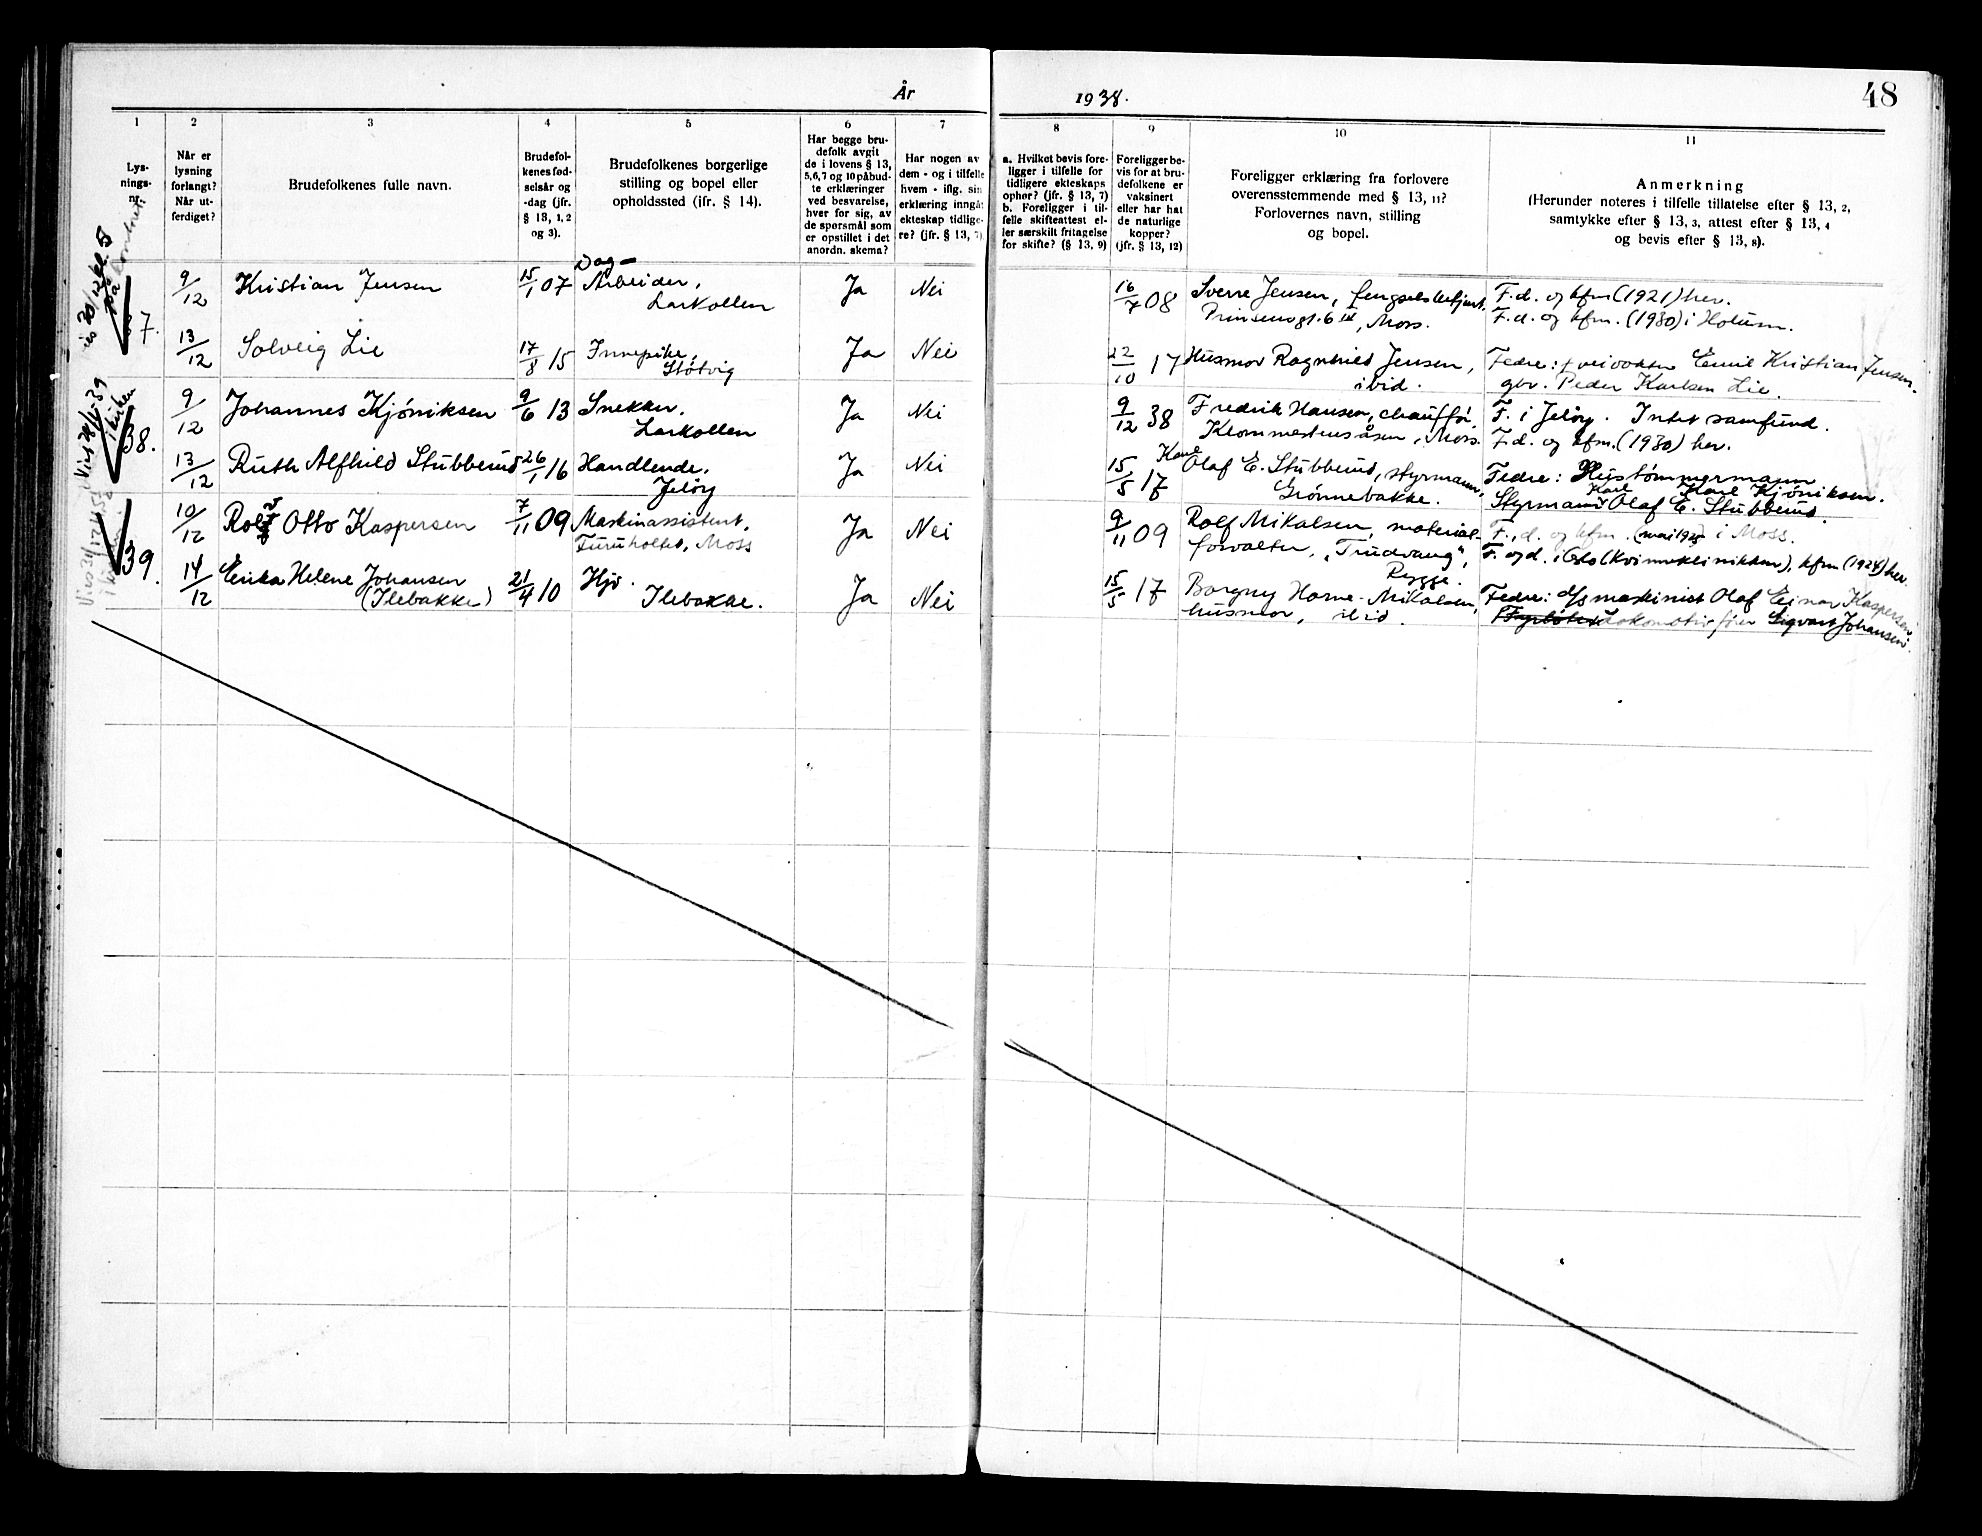 År 1938.
48
1
Lys-
nings-
nr.
2
Når er
lysning
forlangt?
Når ut-
ferdiget?
3
Brudefolkenes fulle navn.
4
Brudefol-
kenes fød-
selsår og
-dag (jfr.
§ 13, 1, 2
og 3).
5
Brudefolkenes borgerlige
stilling og bopel eller
opholdssted (jfr. § 14).
6
Har begge bru-
defolk avgit
de i lovens § 13,
5,6,7 og 10 påbud-
te erklæringer
ved besvarelse,
hver for sig, av
de spørsmål som
er opstillet i det
anordn. skema?
7
Har nogen av
dem - og i tilfelle
hvem - iflg. sin
erklæring inngåt
ekteskap tidlige-
re? (jfr. § 13, 7)
8
a. Hvilket bevis fore-
ligger i tilfelle for
tidligere ekteskaps
ophør? (jfr. § 13, 7)
b. Foreligger i til-
felle skifteattest el-
ler særskilt fritagelse
for skifte? (§ 13, 9)
9
Foreligger be-
vis for at bru-
defolkene er
vaksinert
eller har hat
de naturlige
kopper?
(jfr. § 13, 12)
10
Foreligger erklæring fra forlovere
overensstemmende med § 13, 11?
Forlovernes navn, stilling
og bopel.
11
Anmerkning
(Herunder noteres i tilfelle tillatelse efter § 13, 2,
samtykke efter § 13, 3, attest efter § 13, 4
og bevis efter § 13, 8).
7.
9/12
Kristian Jensen
15/1 07
Dag-
Arbeider,
Larkollen
Ja
Nei
16/4 08
Sverre Jensen, fengselsbetjent,
Prinsensgt. 6 III, Moss.
F.d. og kfm (1921) her.
F.d. og kfm. (1930) i Holum.
13/12
Solveig Lie
17/8 15
Innepike,
Støtvig
Ja
Nei
22/10 17
Husmor Ragnhild Jensen,
ibid.
Fedre: † veivokter Emil Kristian Jensen.
gbr. Peder Karlsen Lie.
Viet 28/1-39
i kirken
38.
9/12
Johannes Kjøniksen
9/6 13
Snekker.
Larkollen
Ja
Nei
9/12 38
Fredrik Hansen, chauffør,
Krommestensåsen, Moss.
F. i Jeløy. Intet samfund.
F.d. og kfm. (1930) her.
13/12
Ruth Alfhild Stubberud
26/1 16
Handlende.
Jeløy
Ja
Nei
15/5 17
Karl
Olaf E. Stubberud, styrmann,
Grønnebakke.
Fedre: Hustømmermann
Karl Kjøniksen.
Karl
Styrmann Olaf E. Stubberud.
39.
10/12
Rolf Otto Kaspersen
7/11 09
Maskinassistent.
Furuholtet, Moss
Ja
Nei
9/11 09
Rolf Mikalsen, material-
forvalter, "Trudvang",
Rygge.
F., d. og kfm. i Moss.
F. og d. i Oslo (Kvinneklinikken), kfm (1924) her.
14/12
Erika Helene Johansen
(Ilebakke)
21/4 10
Hjv.
Ilebakke.
Ja
Nei
15/5 17
Borgny Horne-Mikalsen,
husmor, ibid.
Fedre: d/s maskinist Olaf Einar Kaspersen.
Lokomotivfører Sigvart Johansen.